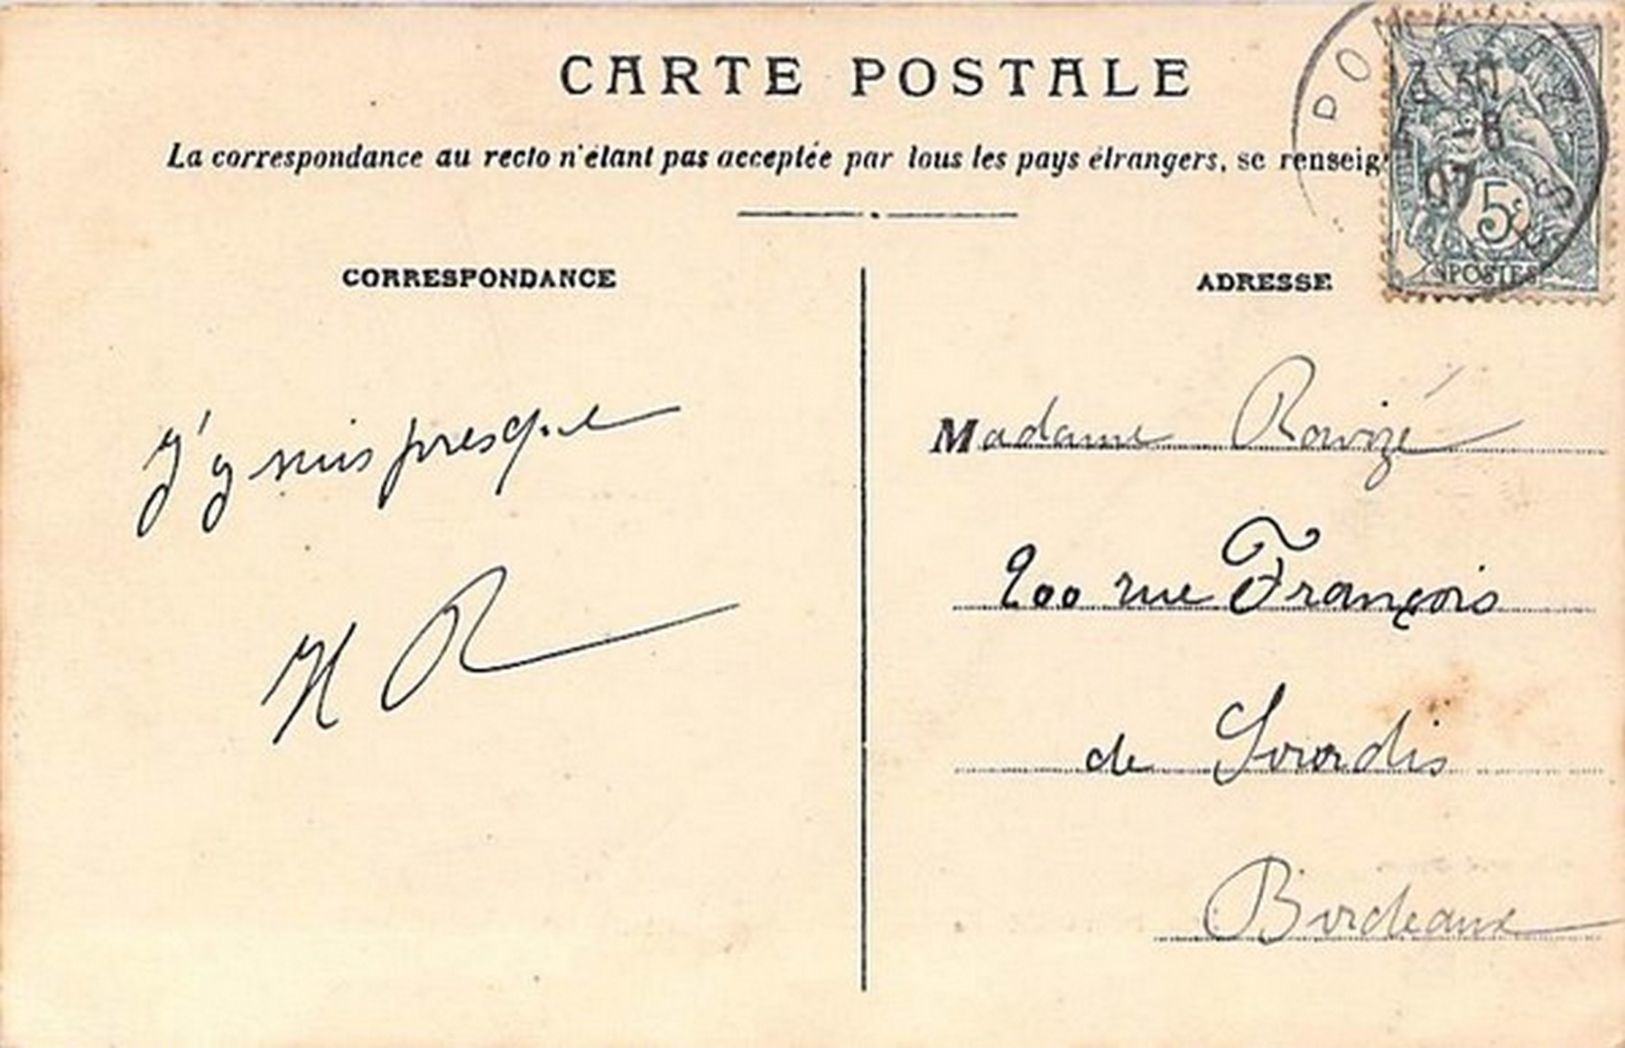 CARTE POSTALE
La correspondance au recto n'étant pas acceptée par tous les pays étrangers, se renseig
CORRESPONDANCE
ADRESSE
3 30
-8
07
5c
POSTES
J'y suis presque
H R
Madame Rowizé
200 rue François
de Sourdis
Bordeaux